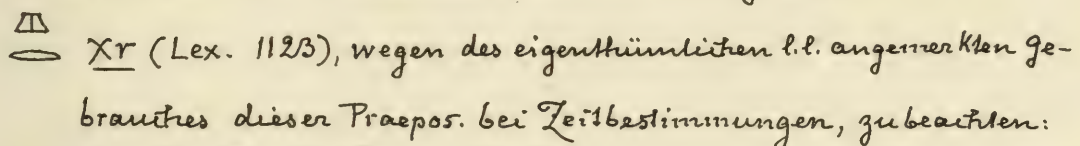 𓌨
𓂋 Xr (Lex. 1123), wegen des eigenthümlichen l.l. angemerkten Ge-
brauches dieser Praepos. bei Zeitbestimmungen, zu beachten: